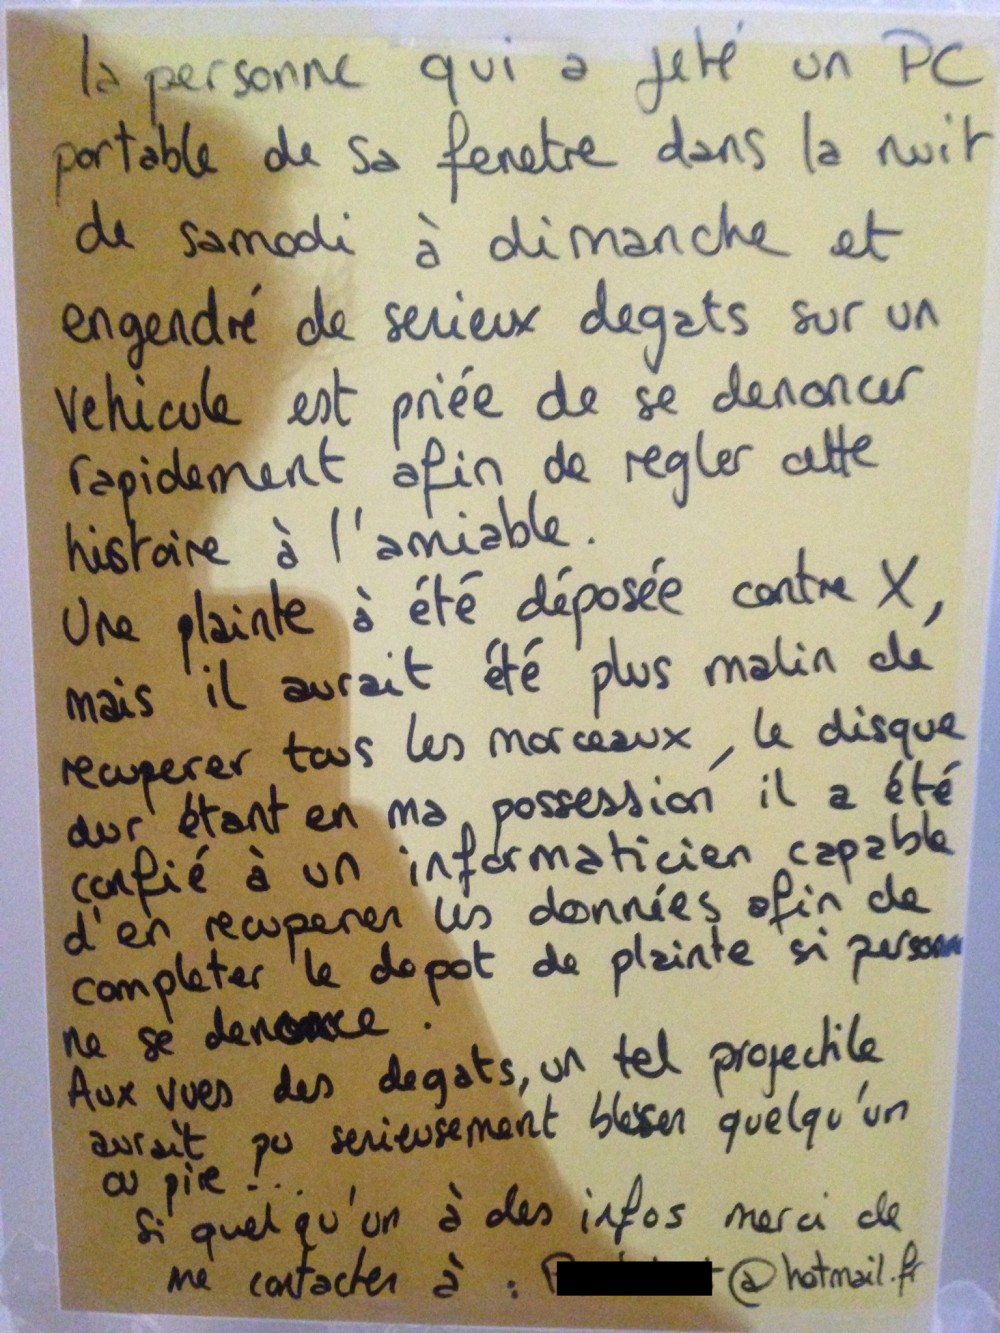 la personne qui a jeté un PC
portable de sa fenetre dans la nuit
de samedi à dimanche et
engendré de serieux degats sur un
vehicule est priée de se denoncer
rapidement afin de regler cette
histoire à l'amiable.
Une plainte à été déposée contre X,
mais il aurait été plus malin de
recuperer tous les morceaux, le disque
dur étant en ma possession il a été
confié à un informaticien capable
d'en recuperer les données afin de
completer le depot de plainte si personne
ne se denonce.
Aux vues des degats, un tel projectile
aurait pu serieusement blesser quelqu'un
ou pire !...
Si quelqu'un à des infos merci de
me contacter à : @hotmail.fr